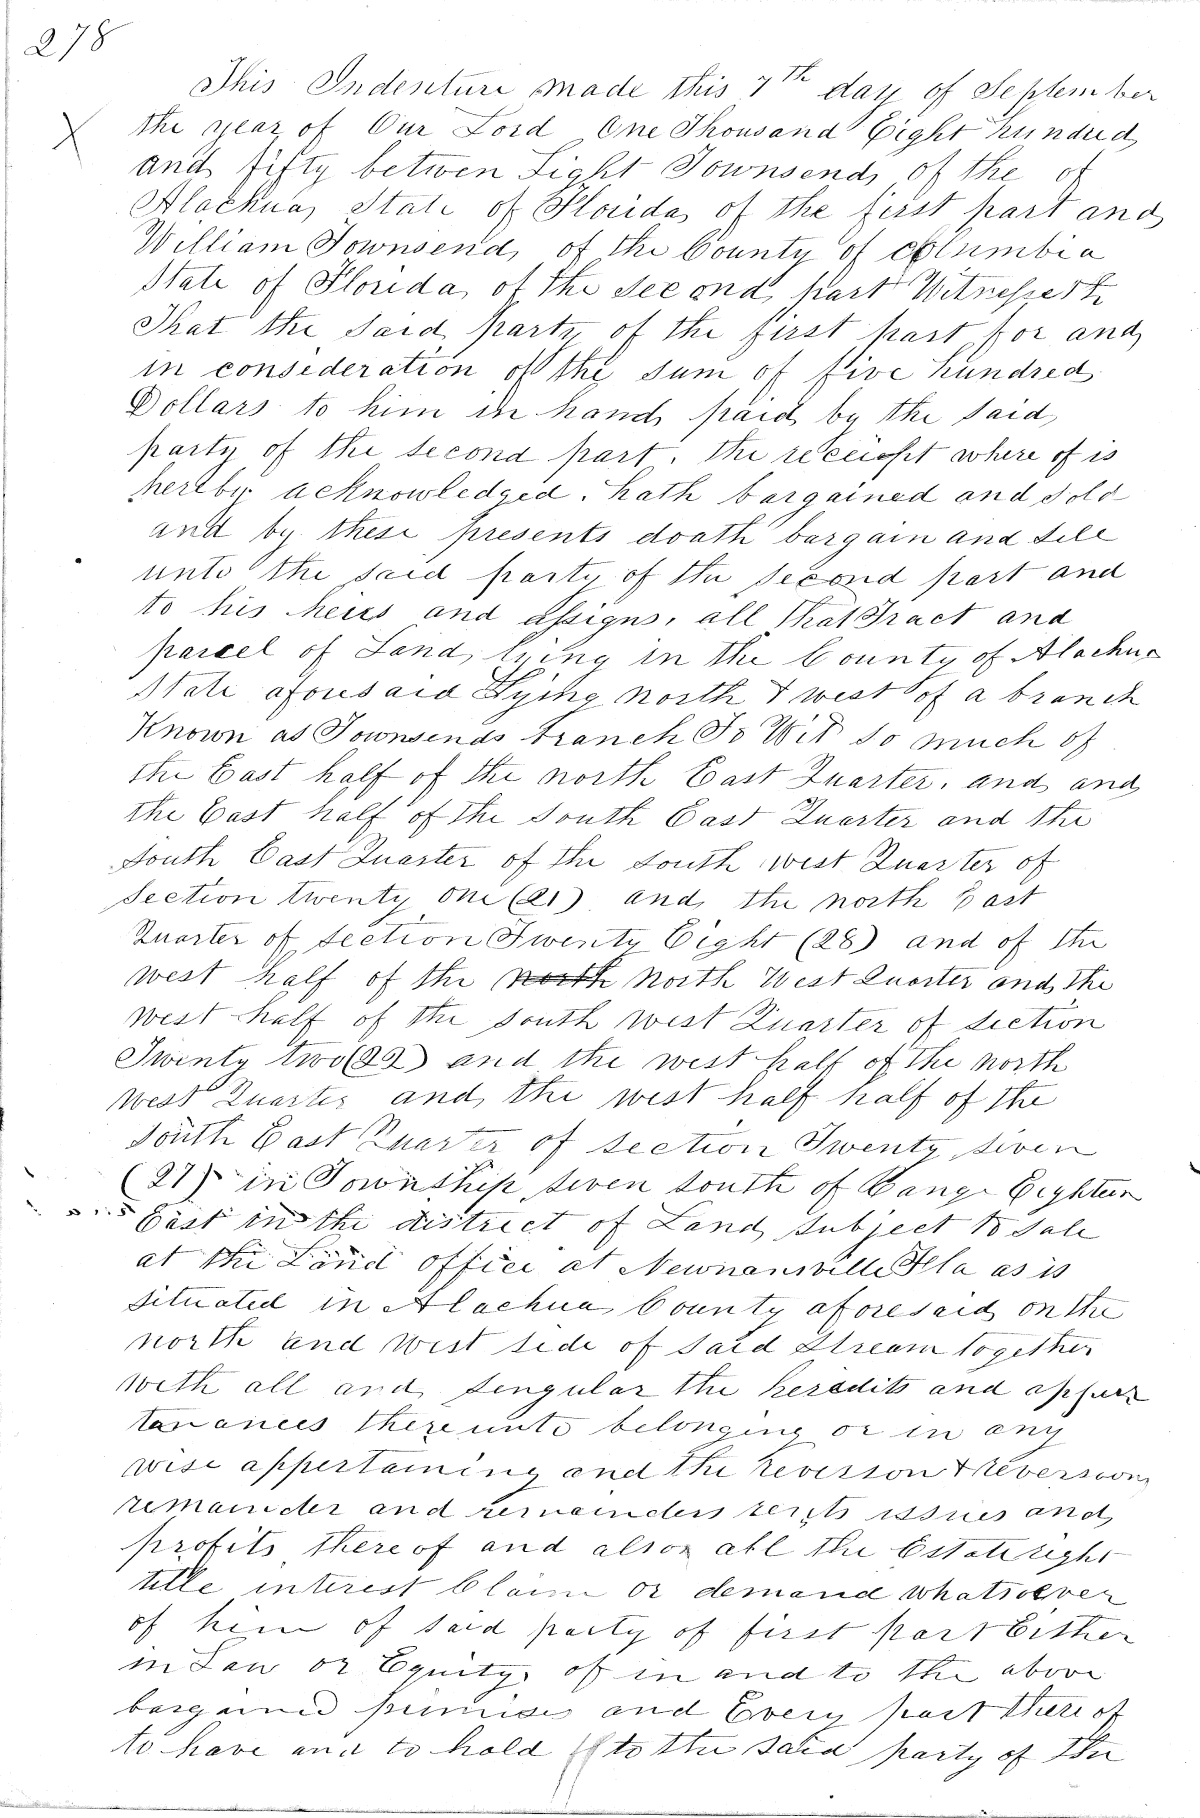 278
This Indenture made this 7th day of September
the year of Our Lord One Thousand Eight hundred
and fifty betwen Light Townsend of the of
Alachua State of Florida of the first part and
William Townsend of the County of columbia
State of Florida of the second part Witnesseth
That the said party of the first part for and
in consideration of the sum of five hundred
Dollars to him in hand paid by the said
party of the second part. the receiept where of is
hereby acknowledged. hath bargained and sold
and by these presents doath bargain and sell
unto the said party of the second part and
to his heirs and assigns, all That Tract and
parcel of Land, lying in the County of Alachua
State aforesaid Lying north & west of a branch
Known as Townsends branch To Wit so much of
the East half of the north East Quarter. and and
the East half of the South East Quarter and the
South East Quarter of the south west Quarter of
Section twenty one (21) and the north East
Quarter of section Twenty Eight (28) and of the
west half of the north North West Quarter and the
west half of the south west Quarter of section
Twenty two (22) and the west half of the north
west Quarter and the west half half of the
South East Quarter of section Twenty seven
(27) in Township seven south of Range Eighteen
East in the district of Land subject to sale
at the Land office at Newnansville Fla as is
situated in Alachua County aforesaid on the
north and west side of said stream together
with all and singular the heredits and appur
tanances there unto belonging or in any
wise appertaining and the reversson & reversions
remainder and remainders rents issues and
profits thereof and also all the Estate right
title interest Claim or demand whatsoever
of him of said party of first part Either
in Law or Equity, of in and to the above
bargained premises and Every part there of
to have and to hold to the said party of the